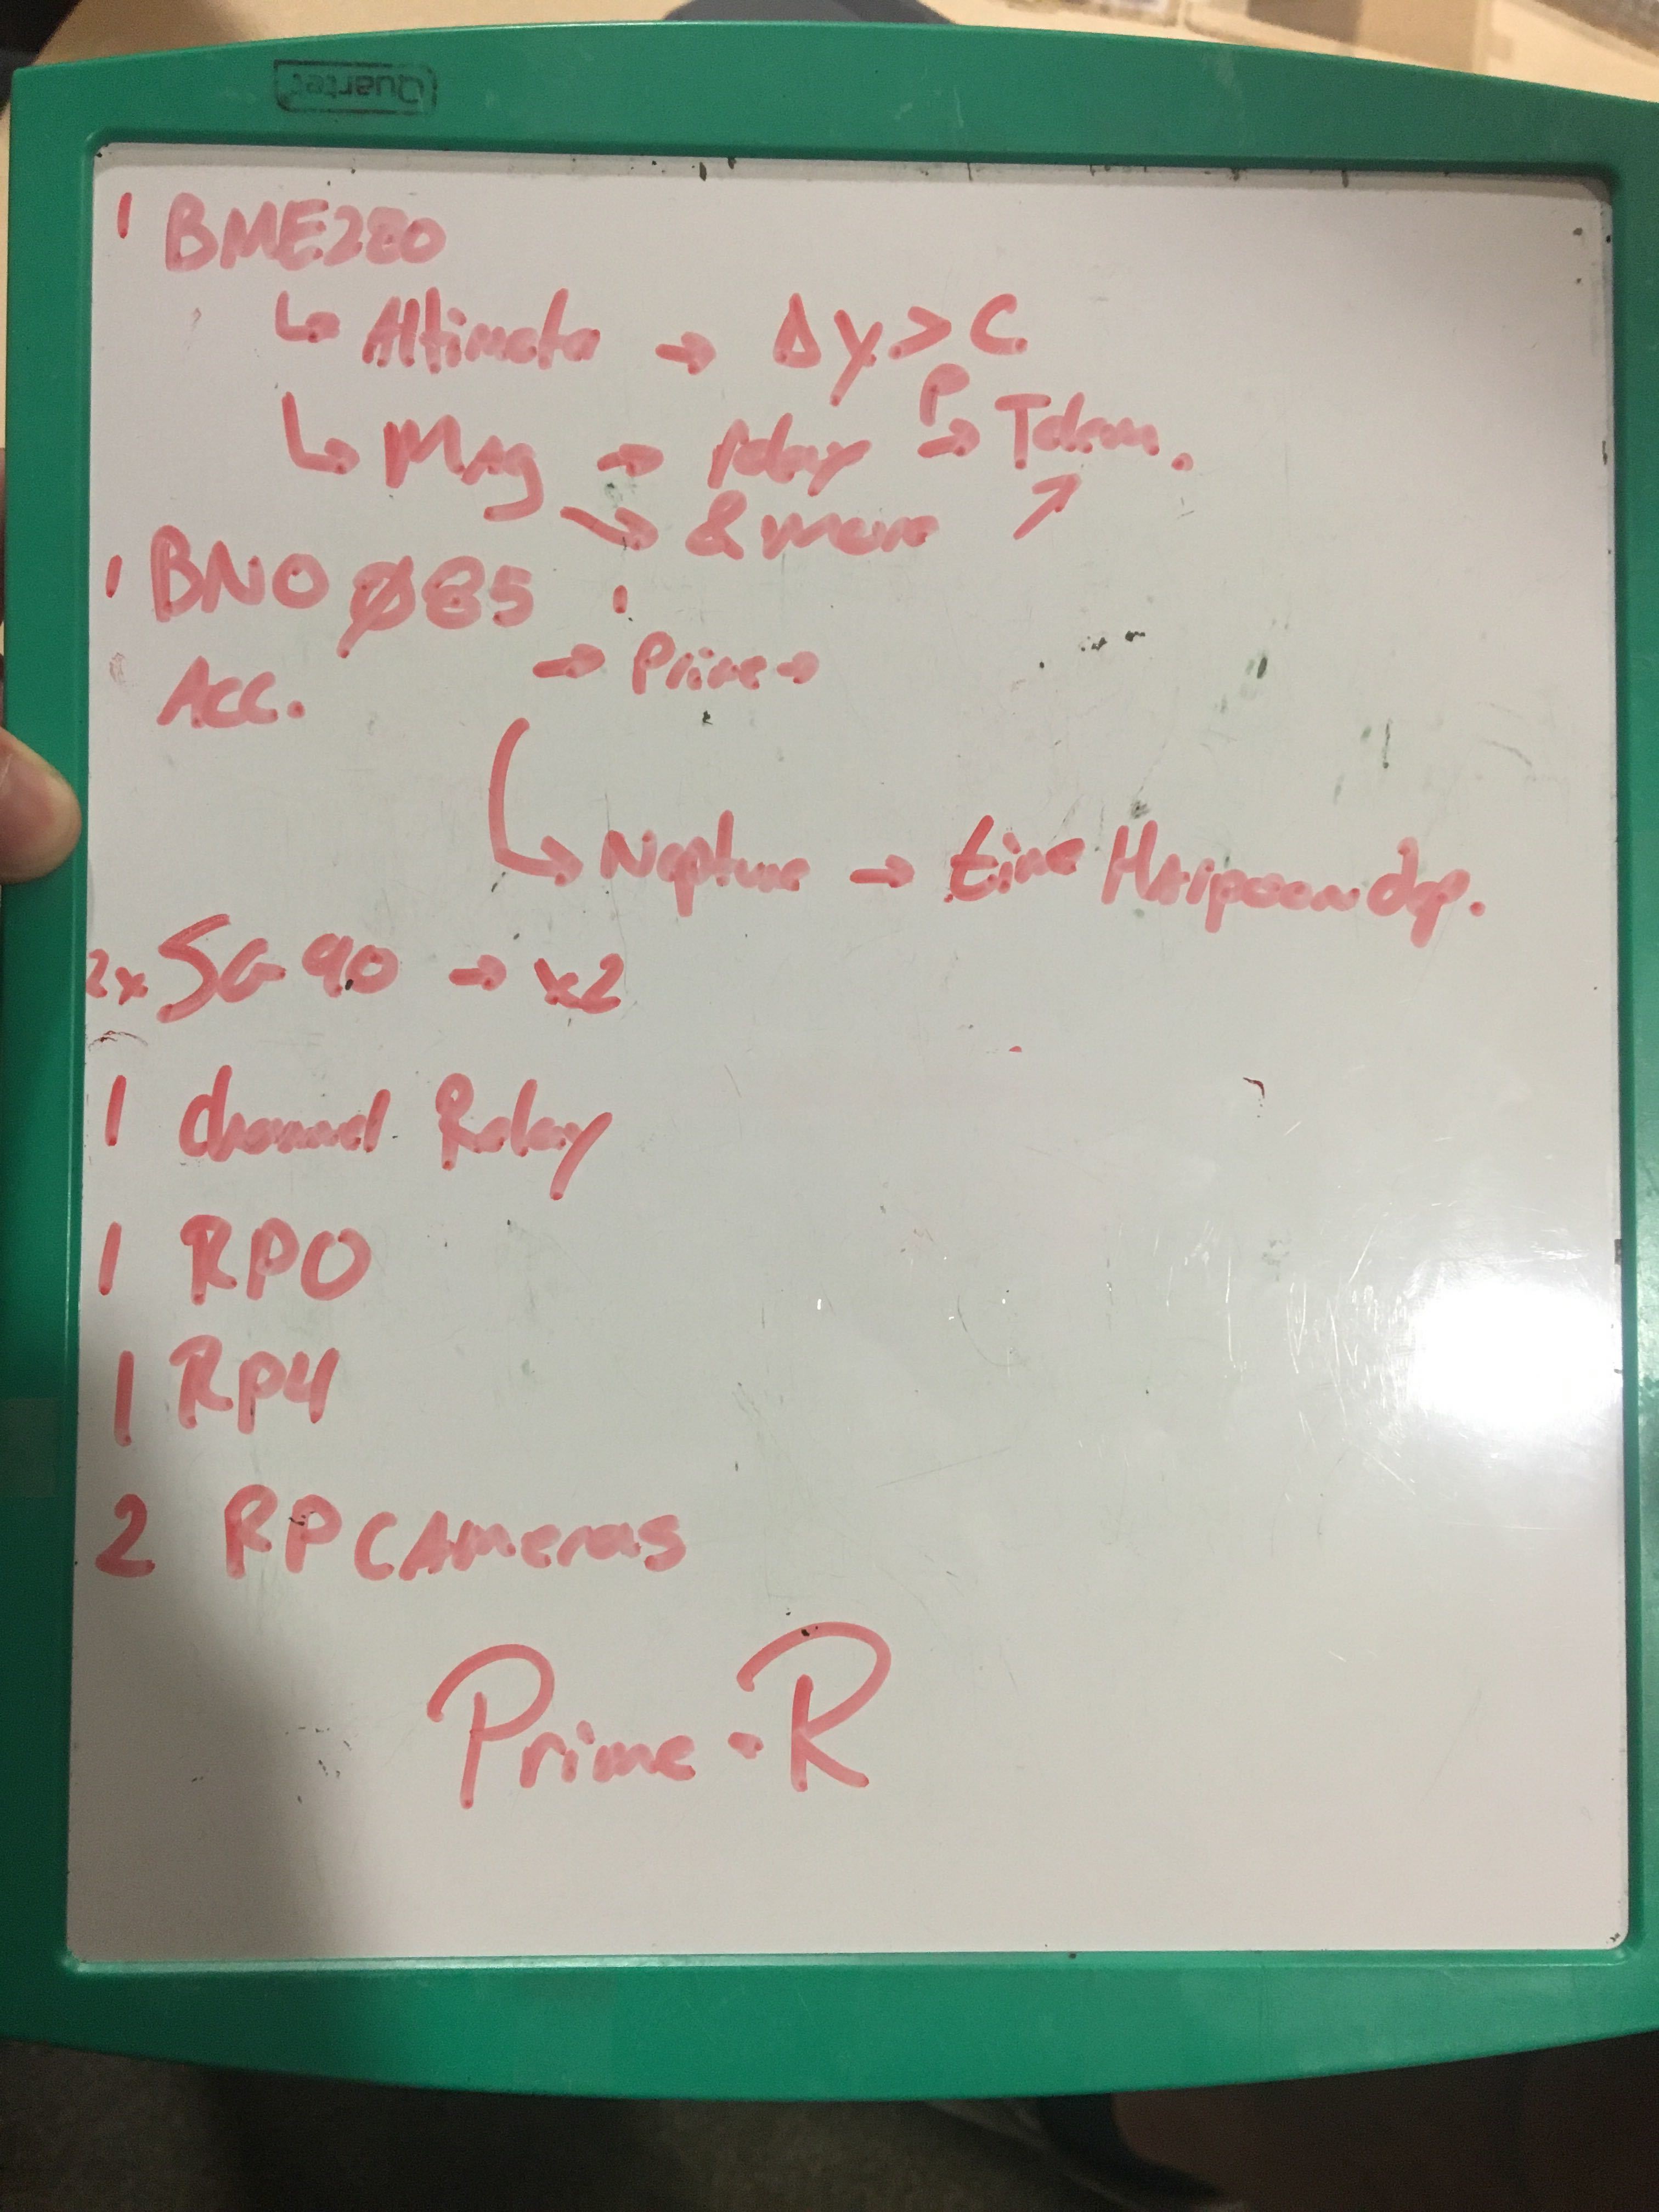 Quartet
1 BME280
↳ Altimeter → Δy > C
↳ Mag → relay → P Telem.
→ & more ↗
1 BNO Ø85
Acc. → Prime →
↳ Neptune → time Harpoon dep.
2x SG90 → x2
1 channel Relay
1 RPO
1 RP4
2 RP CAmeras
Prime - R